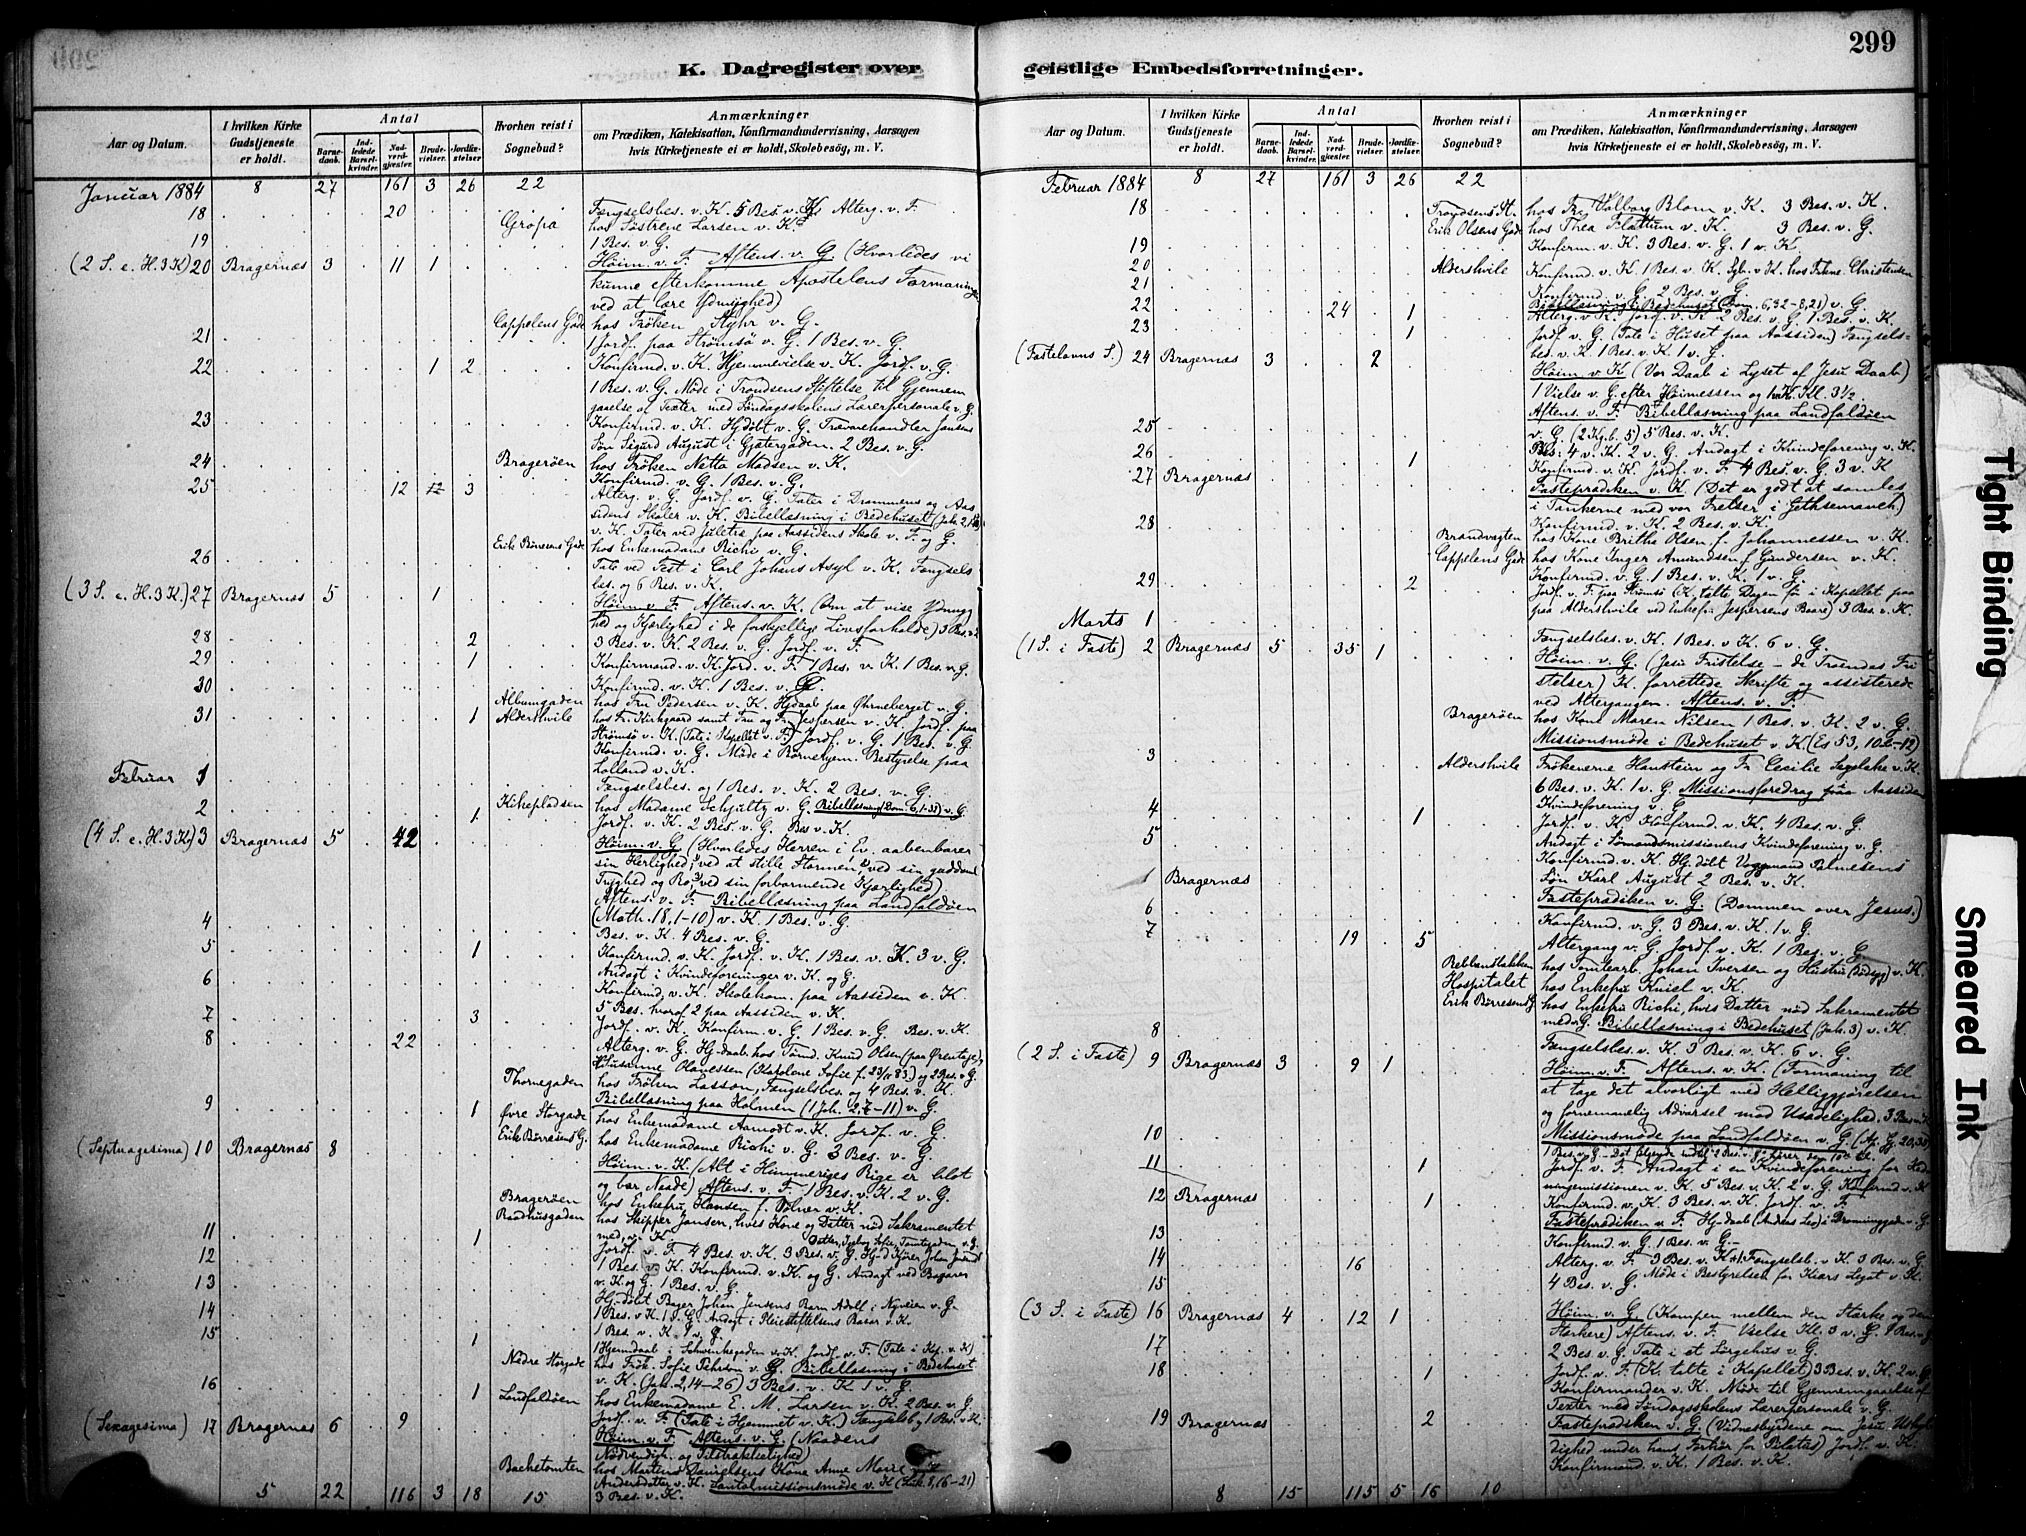 299
K. Dagregister over geistlige Embedsforretninger.
Aar og Datum.
I hvilken Kirke Gudstjeneste er holdt.
Antal
Barnedaab.
Indledede Barselkvinder.
Nadverdgjæster.
Brudevielser.
Jordfæstelser
Hvorhen reist i Sognebud?
Anmærkninger
om Prædiken, Katekisation, Konfirmandundervisning, Aarsagen
hvis Kirketjeneste ei er holdt, Skolebesög, m. V.
Januar 1884 8 27 161 3 26 22
18 20 Fængselsbes. v. K. 5 Bes. v. K. Alterg. v. F.
Gropa hos Søstrene Larsen v. K.
19 1 Bes. v. G.
(2 S. e. H. 3 K) 20 Bragernæs 3 11 1 Høim. v. F. Aftens. v. G (Hvorledes vi
kunne efterkomme Apostelens Formaning
ved at lære Ydmyghed)
Cappelens Gade hos Frøken Styhr v. G.
21 1 Jordf. paa Strømsø v. G. 1 Bes. v. G.
22 1 2 Konfirmd. v. K. Hjemmevielse v. K. Jordf. v. G.
1 Bes. v. G. Møde i Trondsens Stiftelse til Gjennem
gaaelse af Texter med Søndagsskolens Lærerpersonale v. G.
23 Konfirmd. v. K. Hjdøbt v. G. Trævarehandler Jansens
Søn Sigurd August i Gjætergaden. 2 Bes. v. G.
24 Bragerøen hos Frøken Netta Madsen v. K.
Konfirmd. v. G. 1 Bes. v. G.
25 12 3 Alterg. v. G. Jordf. v. G. Taler i Drammens og Aas
sidens Skoler v. K. Bibellæsning i Bedehuset
v. K. Taler ved Juletræ paa Aassidens Skole v. F. og G.
Erik Børresens Gade hos Enkemadame Richi v. G.
26 Tale ved Fest i Carl Johans Asyl v. K. Fængsels
bes. og 6 Bes. v. K.
(3 S. e. H. 3 K.) 27 Bragernæs 5 1 Høim. v. F. Aftens. v. K. (Om at vise Ydmyg
hed og Kjærlighed i de forskjellige Livsforholde) 3 Bes.
28 2 3 Bes. v. K. 2 Bes. v. G. Jordf. v. F.
29 1 Konfirmand. v. K. Jord. v. F. 1 Bes. v. K. 1 Bes. v. G.
30 Konfirmd. v. K. 1 Bes. v. G.
Albumgaden hos Fru Pedersen v. K. Hjdaab paa Øhrneberget v. G.
31 Aldershvile 1 hos Fr. Kirkgaard samt Fru og Fr. Jespersen v. K. Jordf. paa
Strømsø v. K. (Tale i Kapellet v. F.) Jordf. v. G. 1 Bes. v. G.
Konfirmd. v. G. Møde i Børnehjem. Bestyrelse paa
Lolland v. K.
Februar 1 Fængselsbes. og 1 Bes. v. K. 2 Bes. v. G.
2 Kirkepladsen hos Madame Schjultz v. G. Bibellæsning v. G
1 Jordf. v. K. 2 Bes. v. G. Bes v. K.
(4 S. e. H. 3 K.) 3 Bragernæs 5 42 Høim. v. G. (Hvorledes Herren i Ev. aabenbarer
sin Herlighed, ved at stille Stormen, ved sin guddom
Tryghed og Ro, ved sin forbarmende Kjærlighed)
Aftens. v. F. Bibellæsning paa Landfaldøen
(Math. 18, 1–10) v. K. 1 Bes. v. G.
4 Bes. v. K. 4 Bes. v. G.
5 1 Konfirmd. v. K. Jordf. v. K. 1 Bes. v. K. 3 v. G.
Andagt i Kvindeforeninger v. K. og G.
6 Konfirmd. v. K. Skolekom. paa Aassiden v. K.
5 Bes. hvoraf 2 paa Aassiden v. K.
7 3 Jordf. v. K. Konfirm. v. G. 1 Bes. v. G. Bes. v. K.
8 22 Alterg. v. G. Hj-daab. hos Tømd. Knud Olsen
Susanne Olavessen
Thornegaden hos Frøken Lasson, Fængselsbes. og 4 Bes. v. K.
Bibellæsning paa Holmen (1 Joh. 2, 7–11) v. G.
9 Øvre Storgade 1 hos Enkemadame Aamodt v. K. Jordf. v. G.
Erik Børresens G. hos Enkemadame Richi v. G. 3 Bes. v. G.
(Septuagesima) 10 Bragernæs 8 Høim. v. K. (Alt i Himmeriges Rige er blot
og bar Naade) Aftens. v. F. 1 Bes. v. K. 2 v. G.
Bragerøen hos Enkefru Hansen f. Pølner v. K.
Raadhusgaden hos Skipper Jansen, hvis Kone og Datter nød Sakramentet
med, v. K.
11 1 Jordf. v. F. 4 Bes. v. K. 3 Bes. v. G.
12 1 Bes. v. K. Konfirmd. v. K. og G. Andagt ved Basarer
v. K. og G. 1 Bes. v. G.
13 Hj-døbt Bager Johan Jensens Barn Adolf i Nyveien v. G.
14 1 Bes. v. K. 1 v. G. Andagt i Pleiestiftelsens Basar v. K.
1 Bes. v. K. 1 v. G.
15 1 1 Hjemdaab i Schwenkegaden v. K. Jordf. v. F. (Tale i Kap. v. K)
Nedre Storgade hos Frøk. Sofie Pehrson v. G. Bibellæsning i Bedehuset
v. K. (Jak. 2, 14–26) 3 Bes. v. K 1 v. G.
16 Landfaldøen 1 hos Enkemadame E. M. Larsen v. K. 2 Bes. v. G.
Jordf. v. F. (Tale i Hjemmet v. K.) Fængselsb. og 1 Bes. v. K.
(Sexagesima) 17 Bragernæs 6 9 Høim. v. F. Aftens. v. G. (Naadens
Nødvendigh. og Tilstrækkelighed)
Bachetomten hos Martens Danielsens Kone Anne Marie
Andersdatter v. K. Santalmissionsmøde v. K (Luk. 8, 16–21)
3 Bes. v. K.
5 22 116 3 18 15
Aar og Datum.
I hvilken Kirke Gudstjeneste er holdt.
Antal
Barnedaab.
Indledede Barselkvinder.
Nadverdgjæster.
Brudevielser.
Jordfæstelser.
Hvorhen reist i Sognebud?
Anmærkninger
om Prædiken, Katekisation, Konfirmandundervisning, Aarsagen
hvis Kirketjeneste ei er holdt, Skolebesög, m. V.
Februar 1884 8 27 161 3 26 22
18 Trondsens St. hos Fr. Valborg Blom v. K. 3 Bes. v. K.
Erik Olsens Gade hos Thea Flattum v. K. 3 Bes. v. G.
19 Konfirm. v. K. 3 Bes. v. G. 1 v. K.
20 Aldershvile Konfirmd. v. K. 1 Bes. v. K. v. K. hos Frkne. Christensen
21 Konfirmd. v. G. 2 Bes. v. G
Bibellæsning i Bedehuset (Rom. 6, 32–8, 21) v. G.
22 24 1 Alterg. v. K. Jordf. v. K 2 Bes. v. G 1 Bes. v. K.
23 1 Jordf v. G. (Tale i Huset paa Aassiden) Fængsels-
bes. v. K. 1 Bes. v. K. 1 v. G.
(Fastelavns S.) 24 Bragernæs 3 2 Høim. v. K (Vor Daab i Lyset af Jesu Daab)
1 Vielse v. G. efter Høimessen og 1 v. K. Kl. 3½.
Aftens. v. F. Bibellæsning paa Landfaldøen
25 v. G. (2 Kg. b. 5) 5 Bes. v. K.
26 1 Bes. 4 v. K. 2 v. G. Andagt i Kvindeforening v. K.
Konfirmd. v. K. Jordf. v. F. 4 Bes. v. G. 3 v. K
27 Bragernæs Fasteprædiken v. K. (Det er godt at samles
i Tankerne med vor Frelser i Gethsemaneh)
28 Konfirmd. v. K. 2 Bes. v. K.
Brandvagten hos Kone Brithe Olsen f. Johannessen v. K.
Cappelens Gade hos Kone Inger Amundsen f. Gundersen v. K.
29 2 Konfirmd. v. G. 1 Bes. v. K. 1 v. G.
Jordf. v. F. paa Strømsø (K. talte Dagen før i Kapellet paa
paa Aldershvile ved Enkefru Jespersens Baare) 3 Bes. v. K.
Marts 1 Fængselsbes. v. K. 1 Bes v K. 6 v. G.
(1 S. i Faste) 2 Bragernæs 5 35 1 Høim. v. G. (Jesu Fristelse – de Troendes Fri
stelser) K. forrettede Skrifte og assisterede
ved Altergangen. Aftens. v. F.
Bragerøen hos Kone Maren Nilsen 1 Bes. v. K. 2 v. G.
Missionsmøde i Bedehuset v. K. (Es 53, 10b–12)
3 Aldershvile Frøkenerne Hanstein og Fr. Cecilie v. K.
6 Bes. v. K. 1 v. G. Missionsforedrag paa Aassiden
4 1 Kvindeforening v. G.
Jordf. v. K. Konfirmd. v. K. 4 Bes. v. G.
5 Andagt i Sømandsmissionens Kvindeforening v. G.
Konfirmd. v. K. Hj. døbt Vognmand Palmesens
Bragernæs Søn Karl August 2 Bes. v. K.
Fasteprædiken v. G. (Dommen over Jesus.)
6 Konfirmd. v. G. 3 Bes. v. K. 1 v. G.
7 19 5 Altergang v. G. Jordf. v. K. 1 Bes. v. G.
Reblandsbakken hos Tomtearb. Johan Iversen og Hustru v. K.
Hospitalet hos Enkefru Kniel v. K.
Erik Børresens G. hos Enkefru Richi, hvis Datter nød Sakramentet
med v. G. Bibellæsning i Bedehuset (Jak. 3) v. K.
8 Fængselsbes. v. K. 3 Bes. v. K. 6 v. G.
(2 S. i Faste) 9 Bragernæs 3 9 1 Høim. v. F. Aftens. v. K. (Formaning til
at tage det alvorligt med Helliggjørelsen
og fornemmelig Advarsel mod Usædelighed. 3 Bes.
10 Missionsmøde paa Landfaldøen v. G. (Ap. Gj. 20, 35)
11 1 Jordf. v. F. Andagt i en Kvindeforening for Hed
ningemissionen v. K. 5 Bes. v. K. 2 v. G. Konfirmd v. K
12 Bragernæs 1 Konfirmd. v. K. 3 Bes. v. K. Jordf. v. F.
Fasteprædiken v. F. Hj-daab v. G.
13 Konfirmd. v. G. 1 Bes. v. G.
14 16 Alterg. v. F. 3 Bes. v. K. Fængselsb. v. K. 3 Bes. v. G.
15 4 Bes. v. G. Møde i Bestyrelsen for Kiærs Legat v. K.
(3 S. i Faste) 16 Bragernæs 4 12 1 Høim. v. G. (Kampen mellem den Stærke og den
Stærkere) Aftens. v. F. Vielse Kl. 3 v. G.
17 2 Bes. v. G. Tale i et Sørgehus v. G.
18 1 Jordf. v. F. (K. talte i Kapellet) 3 Bes. v. K. 2 v. G.
Konfirmander v. K. Møde til Gjennemgaaelse af
Texter med Søndagsskolens Lærerpersonale v. G.
19 Bragernæs 2 Fasteprædiken v. G. (Vidnesbyrdene om Jesu Uskyl
dighed under hans Forhør for Pilatus) Jordf. v. K.
Konfirmand. v. K. 1 Bes. v. K.
8 15 115 5 16 10
Tight Binding
Smeared Ink